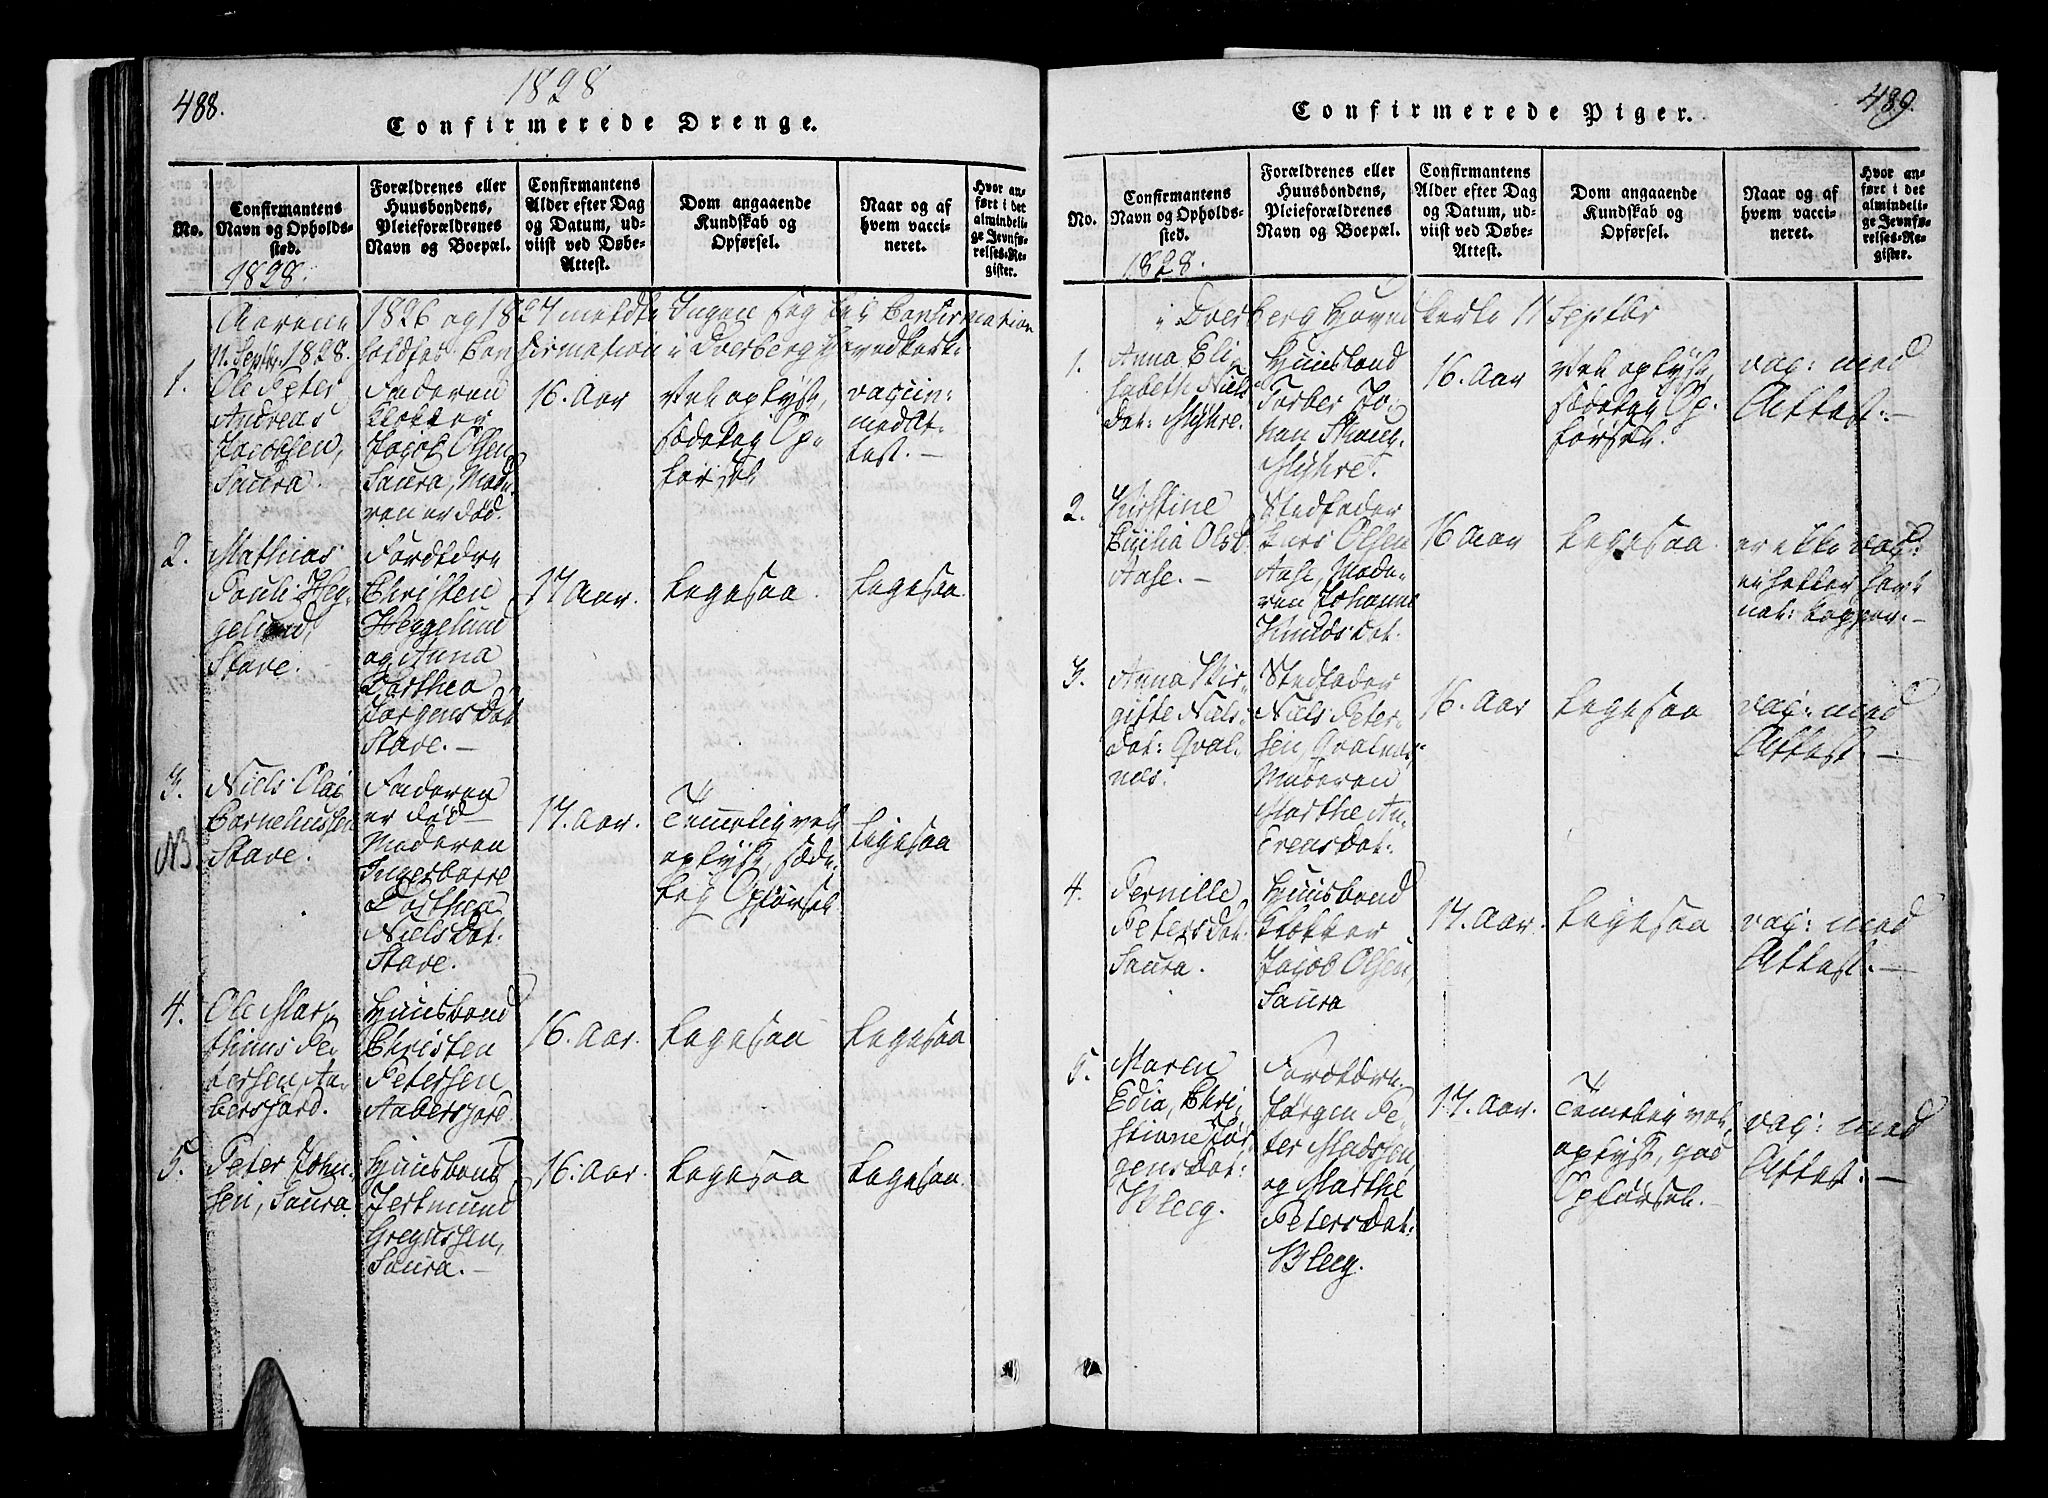 488.
1828
Confirmerede Drenge.
No.
Confirmantens
Navn og Opholds-
sted.
1828.
Forældrenes eller
Huusbondens,
Pleieforældrenes
Navn og Boepæl.
Confirmantens
Alder efter Dag
og Datum, ud-
viist ved Døbe-
Attest.
Dom angaaende
Kundskab og
Opførsel.
Naar og af
hvem vacci-
neret.
Hvor an-
ført i det
almindeli-
ge Jevnfø-
relses-Re-
gister.
Aarene 1826 og 1827 meldte Ingen sig til Confirmation
11 Septbr. 1828. holdtes Confirmation i Dverberg Hovedkirke
1.
Ole Peter
Andreas
Jacobsen,
Saura.
Faderen
Klokker
Jacob Olsen
Saura, Mode-
ren er død.
16. Aar
Vel oplyst,
sædelig Op-
førsel
vaccin:
med At-
test. –
2.
Mathias
Pauli Heg-
gelund,
Stave.
Forældre
Christen
Heggelund
og Anna
Dorthea
Jørgensdat
Stave. –
17 Aar.
Ligesaa.
Ligesaa.
3.
NB
Niels Olai
Cornelиussen
Stave.
Faderen
er død
Moderen
Ingeborre
Dorthea
Nielsdat:
Stave.
17. Aar.
Temmelig vel
oplyst, sæde-
lig Opførsel
Ligesaa
4.
Ole Mar-
thinus Pe-
tersen, Aa-
bersjord.
Huusbond
Christen
Petersen
Aabersjord
16. Aar.
Ligesaa
Ligesaa
5.
Peter John-
sen, Saura
Huusbond
Jertmund
Gregussen,
Saura. –
16. Aar.
Ligesaa
Ligesaa.
489.
Confirmerede Piger.
No.
Confirmantens
Navn og Opholds-
sted.
1828.
Forældrenes eller
Huusbondens,
Pleieforældrenes
Navn og Boepæl.
Confirmantens
Alder efter Dag
og Datum, ud-
viist ved Døbe-
Attest.
Dom angaaende
Kundskab og
Opførsel.
Naar og af
hvem vacci-
neret.
Hvor an-
ført i det
almindeli-
ge Jevnfø-
relses-Re-
gister.
i Dverberg Hovedkirke 11 Septbr
1.
Anna Eli-
sabeth Niels
dat: Myhre.
Huusbond
Torber Jo-
han
Myhre.
16. Aar
Vel oplyst,
sædelig Op-
førsel.
vac: med
Attest. –
2.
Kirstine
Cecilia Olsd.
Aase. –
Stedfader
Lars Olsen
Aase, Mode-
ren Johanne
Knudsdat.
16 Aar
Ligesaa.
er ikke vac:
3.
Anna Bir-
gitte Niels-
dat: Qval-
nes.
Stedfader
Niels Peter-
sen, Qvalnes,
Moderen
Marthe An-
drensdat:
16. Aar
Ligesaa
vac: med
Attest. –
4.
Pernille
Petersdat:
Saura.
Huusbond
Klokker
Jacob Olsen,
Saura
17. Aar.
Ligesaa
vac: med
Attest. –
5.
Maren
Edia, Chri-
stiane Jør-
gensdat:
Bleeg.
Forældre
Jørgen Pe-
ter Madssen,
og Marthe
Petersdat:
Bleeg.
17. Aar.
Temelig vel
oplyst, god
Opførsel. –
vac: med
Attest. –